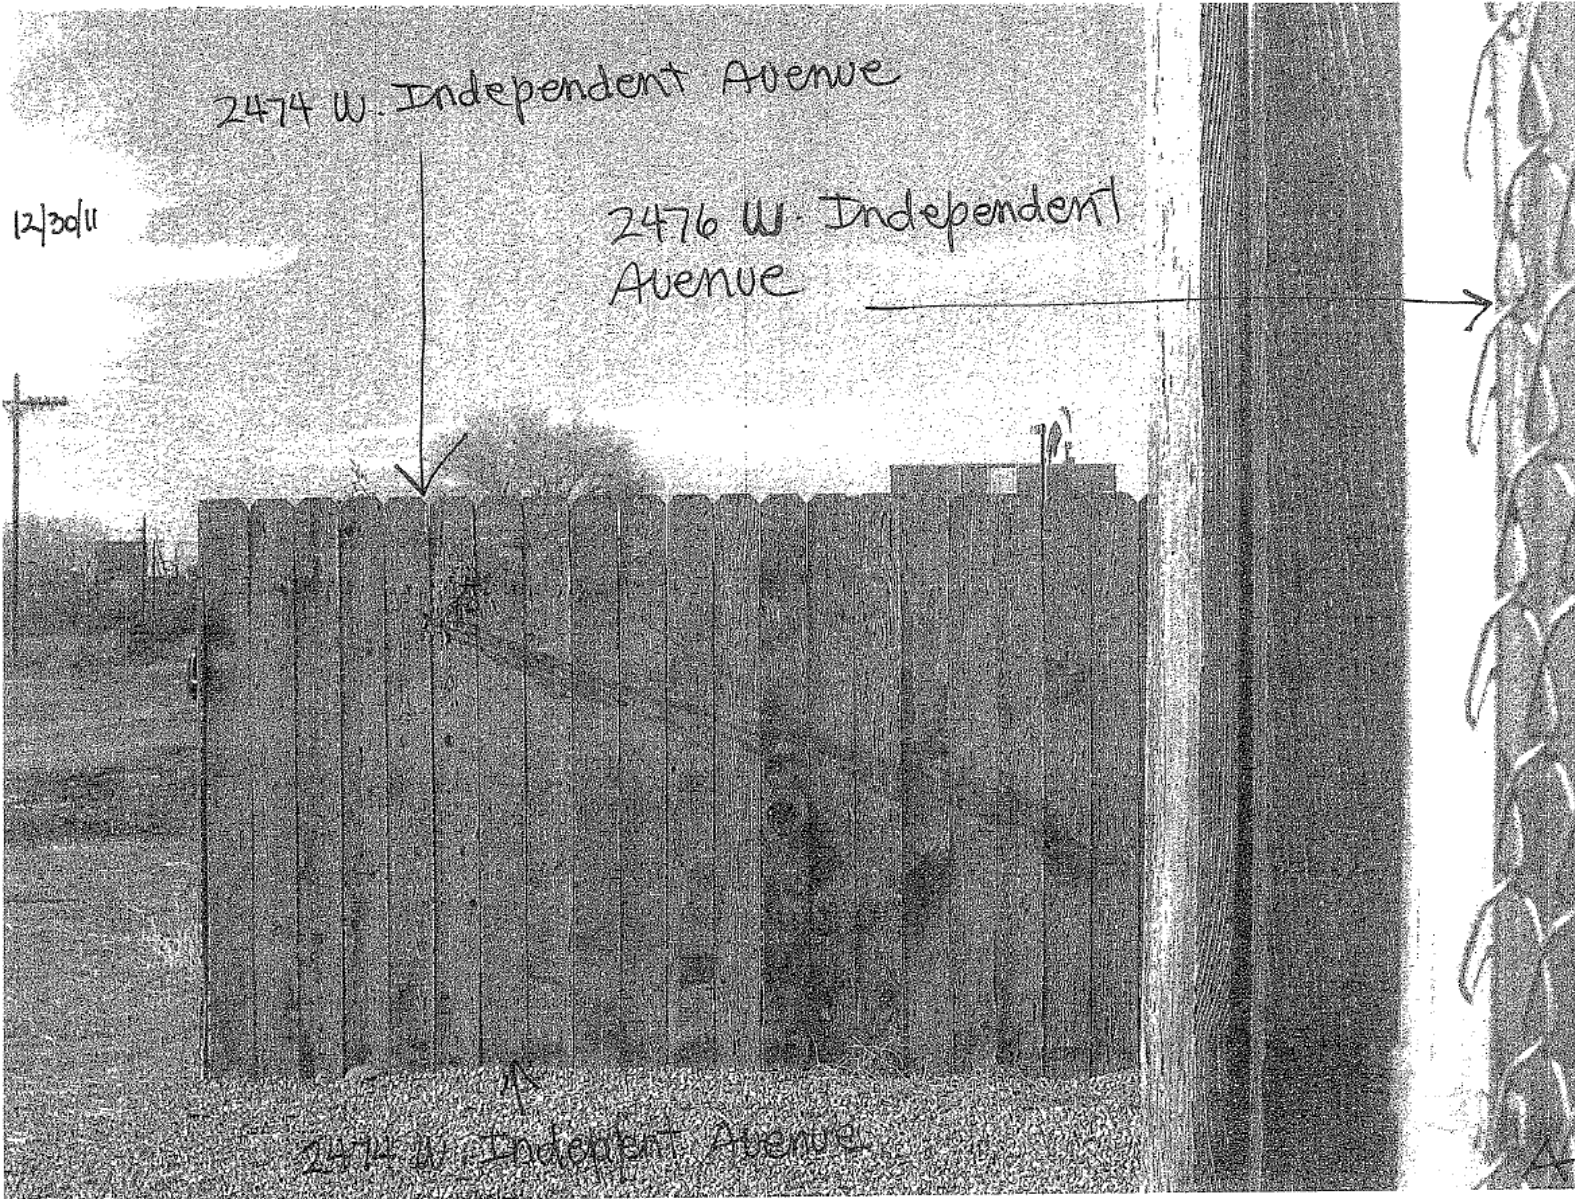 2474 W. Independent Avenue
12/30/11
2476 W. Independent
Avenue
2474 W. Indepent Avenue